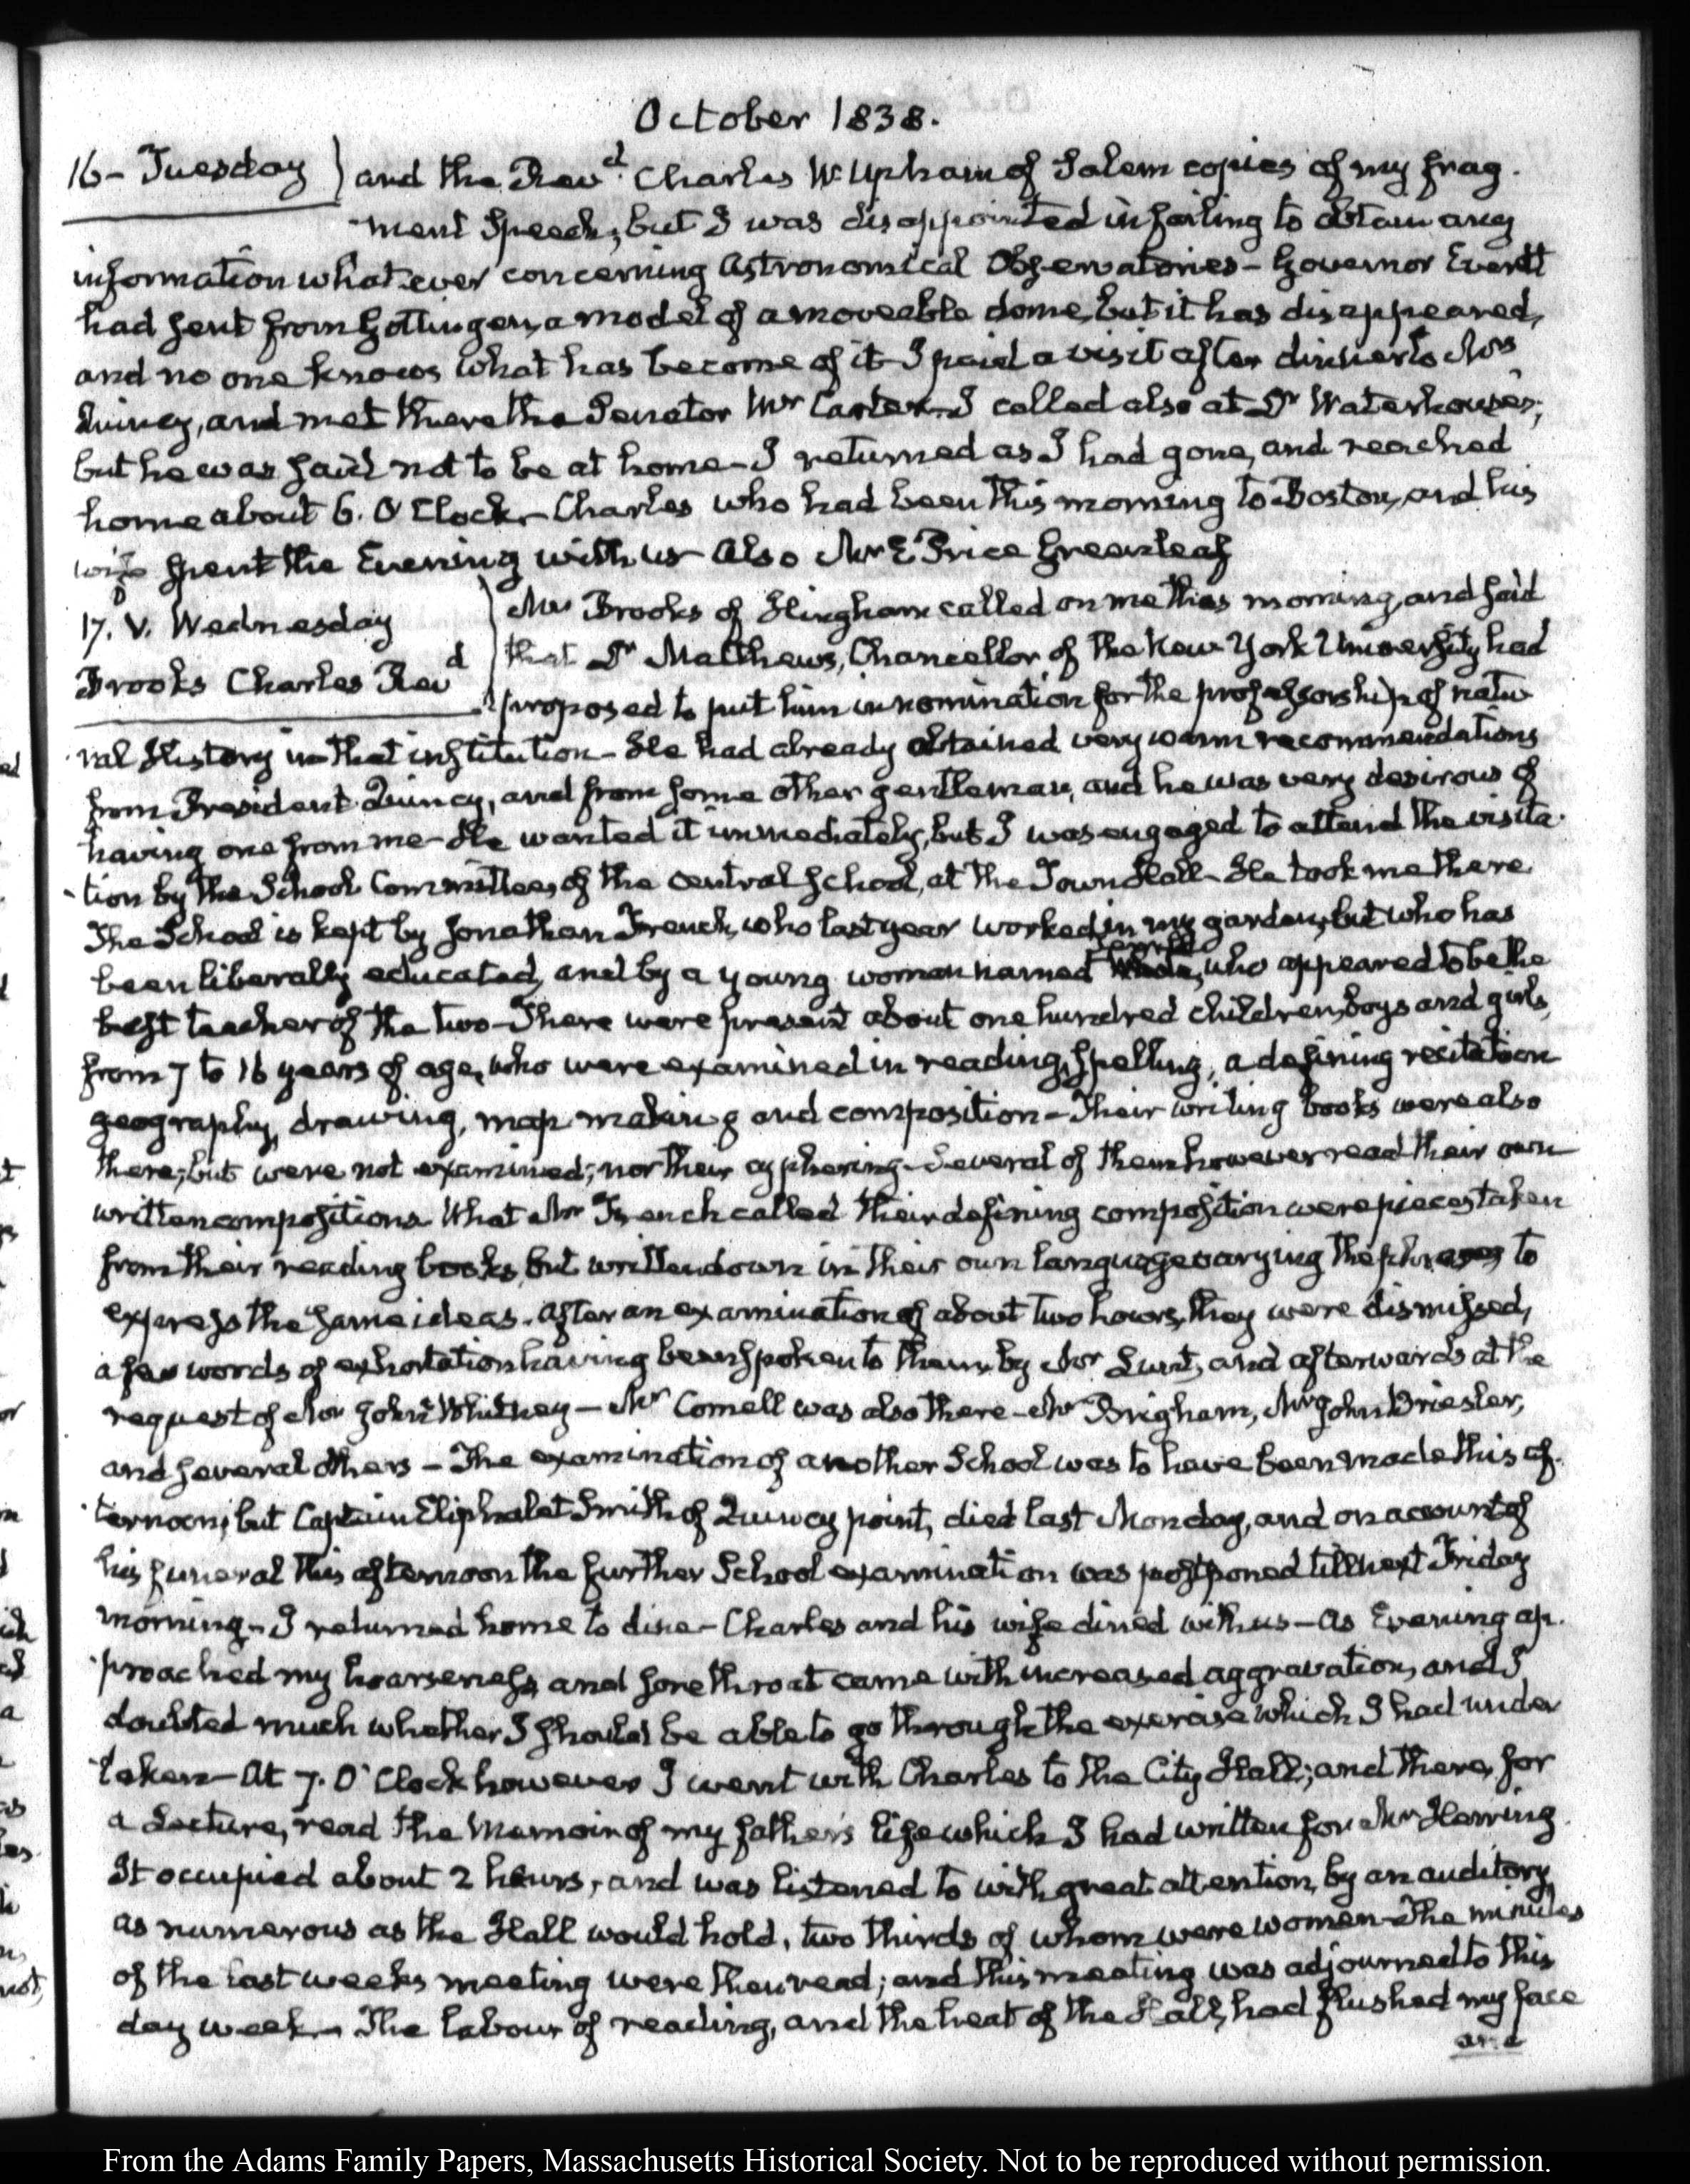 October 1838.
16 - Tuesday
and the Revd. Charles W. Upham of Salem copies of my frag-
-ment Speech, but I was disappointed in failing to obtain any
information whatever concerning Astronomical Observatories - Governor Everett
had sent from Gottingen, a model of a moveable dome, but it has disappeared,
and no one knows what has become of it - I paid a visit after dinner to Mrs
Quincy, and met there the Senator Mr Carter - I called also at Dr Waterhouse's;
but he was said not to be at home - I returned as I had gone, and reached
home about 6. O'Clock - Charles who had been this morning to Boston, and his
wife spent the Evening with us - Also Mr E Price Greenleaf
17. V. Wednesday
Brooks Charles Revd
Mr Brooks of Hingham called on me this morning, and said
that Dr Matthews, Chancellor of the New York University had
proposed to put him in nomination for the professorship of natu-
-ral History in that institution - He had already obtained very warm recommendations
from President Quincy, and from some other gentleman, and he was very desirous of
having one from me - He wanted it immediately, but I was engaged to attend the visita-
-tion by the School Committee, of the central School, at the Town Hall - He took me there
The School is kept by Jonathan French, who last year worked in my garden, but who has
been liberally educated, and by a young woman named who appeared to be the
best teacher of the two - There were present about one hundred children, boys and girls,
from 7 to 16 years of age, who were examined in reading, spelling, a defining recitation
geography, drawing, map making and composition - Their writing books were also
there, but were not examined; nor their cyphering - Several of them however read their own
written compositions What Mr French called their defining composition were pieces taken
from their reading books, but written down in their own language varying the phrases to
express the same ideas. After an examination of about two hours, they were dismissed,
a few words of exhortation having been spoken to them, by Mr Lunt, and afterwards at the
request of Mr John Whitney - Mr Cornell was also there - Mr Brigham, Mr John Briesler,
and several others - The examination of another School was to have been made this af-
-ternoon; but Captain Eliphalet Smith of Quincy point, died last Monday, and on account of
his funeral this afternoon the further School examination was postponed till next Friday
morning - I returned home to dine - Charles and his wife dined with us - As Evening ap-
-proached my hoarseness and sore throat came with increased aggravation, and I
doubted much whether I should be able to go through the exercise which I had under
-taken - At 7. O'Clock however I went with Charles to the City Hall; and there, for
a Lecture, read the Memoir of my father's life which I had written for Mr Herring
It occupied about 2 hours, and was listened to with great attention, by an auditory
as numerous as the Hall would hold, two thirds of whom were women - The minutes
of the last weeks meeting were then read; and this meeting was adjourned to this
day week - The labour of reading, and the heat of the Hall, had flushed my face
and
From the Adams Family Papers, Massachusetts Historical Society. Not to be reproduced without permission.